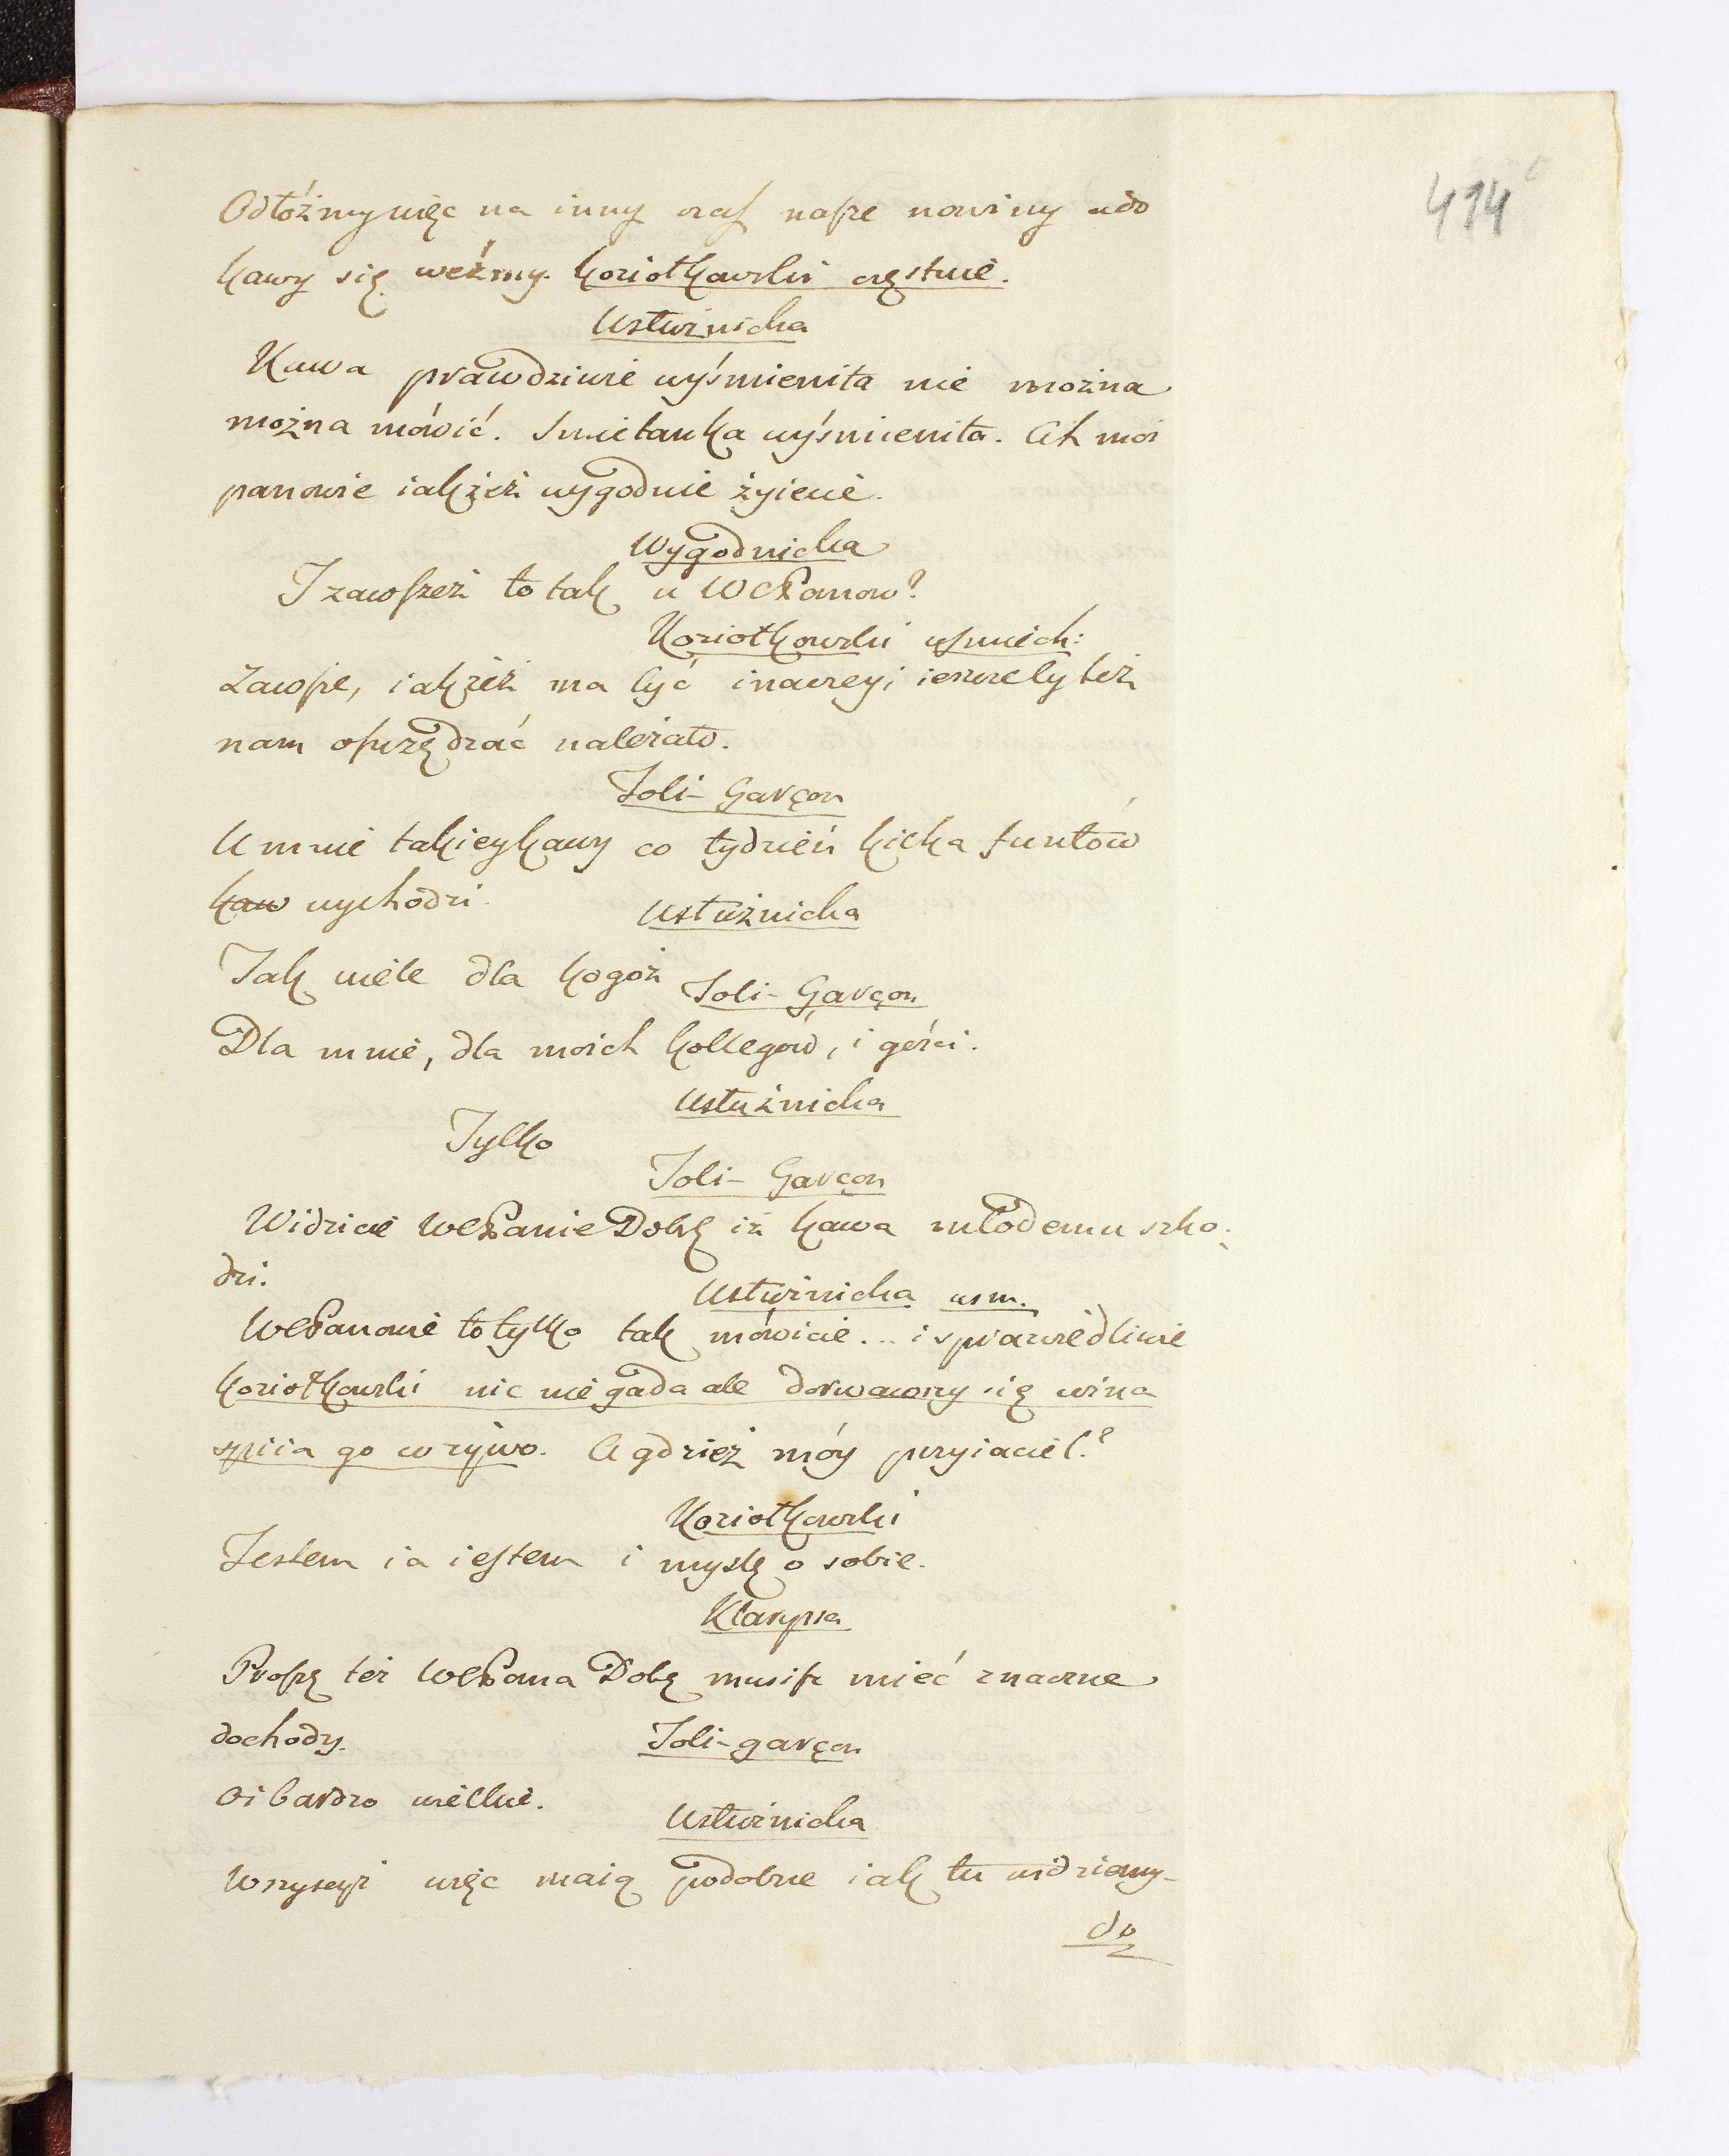 414
Odłóżmy więc na inny czas nasze nowiny a do
kawy się weźmy. Koziołkowski częstuie.
Usłużnicka
Kawa prawdziwie wyśmienita nie można
można mówić. Smietanka wyśmienita. Ah moi
panowie iakżeż wygodnie żyiecie.
Wygodnicka
I zawszeż to tak u WcPanow?
Koziołkowski uśmiech:
Zawsze, iakżeż ma być inaczeyi ieszcze by też
nam oszczędzać należało.
Joli-Garçon
U mnie takiey kawy co tydzień kilka funtów
kaw wychodzi.
Usłużnicka
Tak wiele dla kogoż
Joli-Garçon
Dla mnie, dla moich kollegów, i gości.
Usłużnicka
Tylko
Joli-Garçon
Widzicie WcPanie Dobę iż kawa młodemu szko-
dzi.
Usłużnicka usm.
WcPanowie to tylko tak mówicie... i sprawiedliwie
Koziołkowski nic nie gada ale dorwawszy się wina
spiia go co żywo. A gdzież móy przyiaciel?
Koziołkowski
Jestem ia iestem i myslę o sobie.
Klarypsa
Proszę też WcPana Dobę musisz mieć znaczne
dochody.
Joli-garçon
Oi bardzo wielkie.
Usłużnicka
Wszyscyż więc maią podobne iak tu widziemy
do